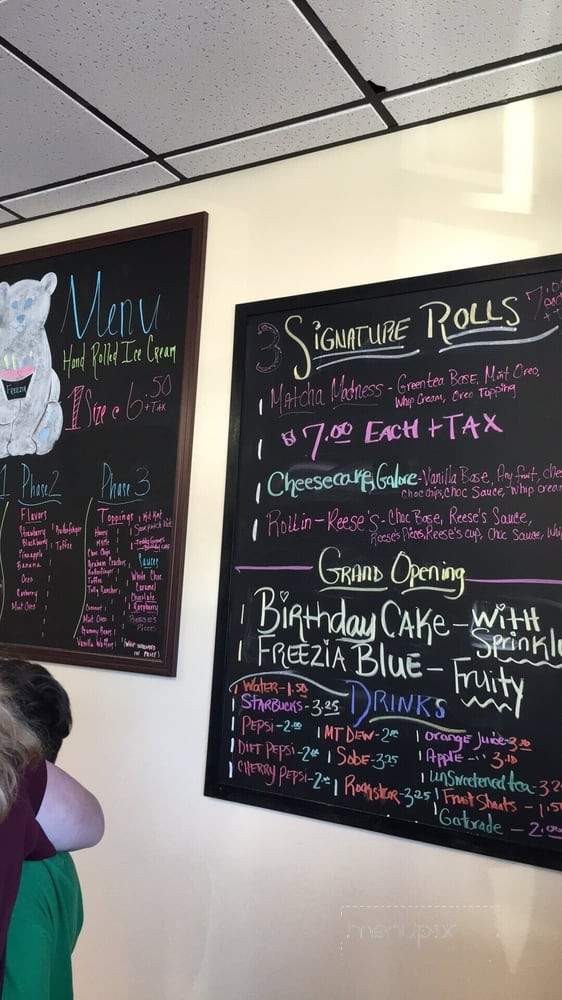 Menu
Hand Rolled Ice Cream
FREEZIA
1 Size @ 6.50
+TAX
Phase 2
Flavors
Strawberry
Blackberry
Pineapple
Banana
Oreo
Mint Oreo
Butterfinger
Toffee
Phase 3
Toppings
Honey
Choc Chips
Graham Cracker
Butterfinger
Toffee
Coconut
Mint Oreo
Gummy Bears
Vanilla Wafers
Kit Kat
Sauces
White Choc
Caramel
Chocolate
Raspberry
Reese's
Pieces
3 SIGNATURE ROLLS
Matcha Madness - Greentea Base, Mint Oreo,
Whip Cream, Oreo Topping
$7.00 EACH + TAX
Cheesecake Galore - Vanilla Base, Any fruit, che
Choc chips, Choc Sauce, Whip cream
Rollin - Reese's - Choc Base, Reese's Sauce,
Reese's Pieces, Reese's cup, Choc Sauce, Whi
GRAND Opening
Birthday CAKe - WITH
Sprinkle
FREEZIA BLUE - Fruity
DRINKS
WATER - 1.50
STARBUCKS - 3.25
PEPSI - 2.00
DIET PEPSI - 2.00
CHERRY PEPSI - 2.00
MT DEW - 2.00
SOBE - 3.25
Rockstar - 3.25
Orange Juice - 3.10
Apple - 3.10
UnSweetened tea - 3.2
Fruit Shoots - 1.5
Gatorade - 2.00
menupix